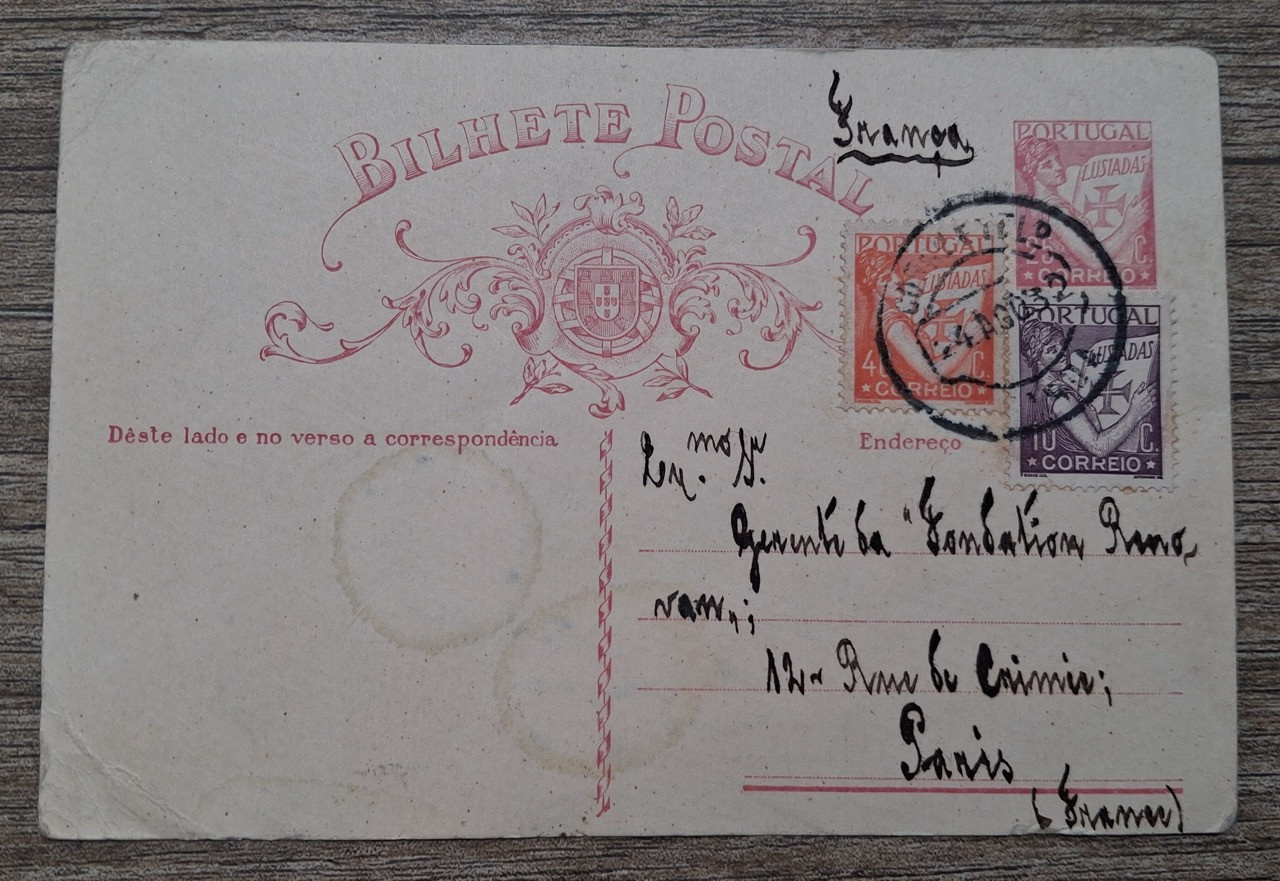 BILHETE POSTAL
França
PORTUGAL
LUSIADAS
25 C.
CORREIO
PORTUGAL
LUSIADAS
40 C.
CORREIO
24 AGO 32
PORTUGAL
LUSIADAS
10 C.
CORREIO
Dêste lado e no verso a correspondência
Endereço
Ex.mo Sr.
Gerente da "Fondation Reno-
van„;
12- Rue de Crimie;
Paris
(France)